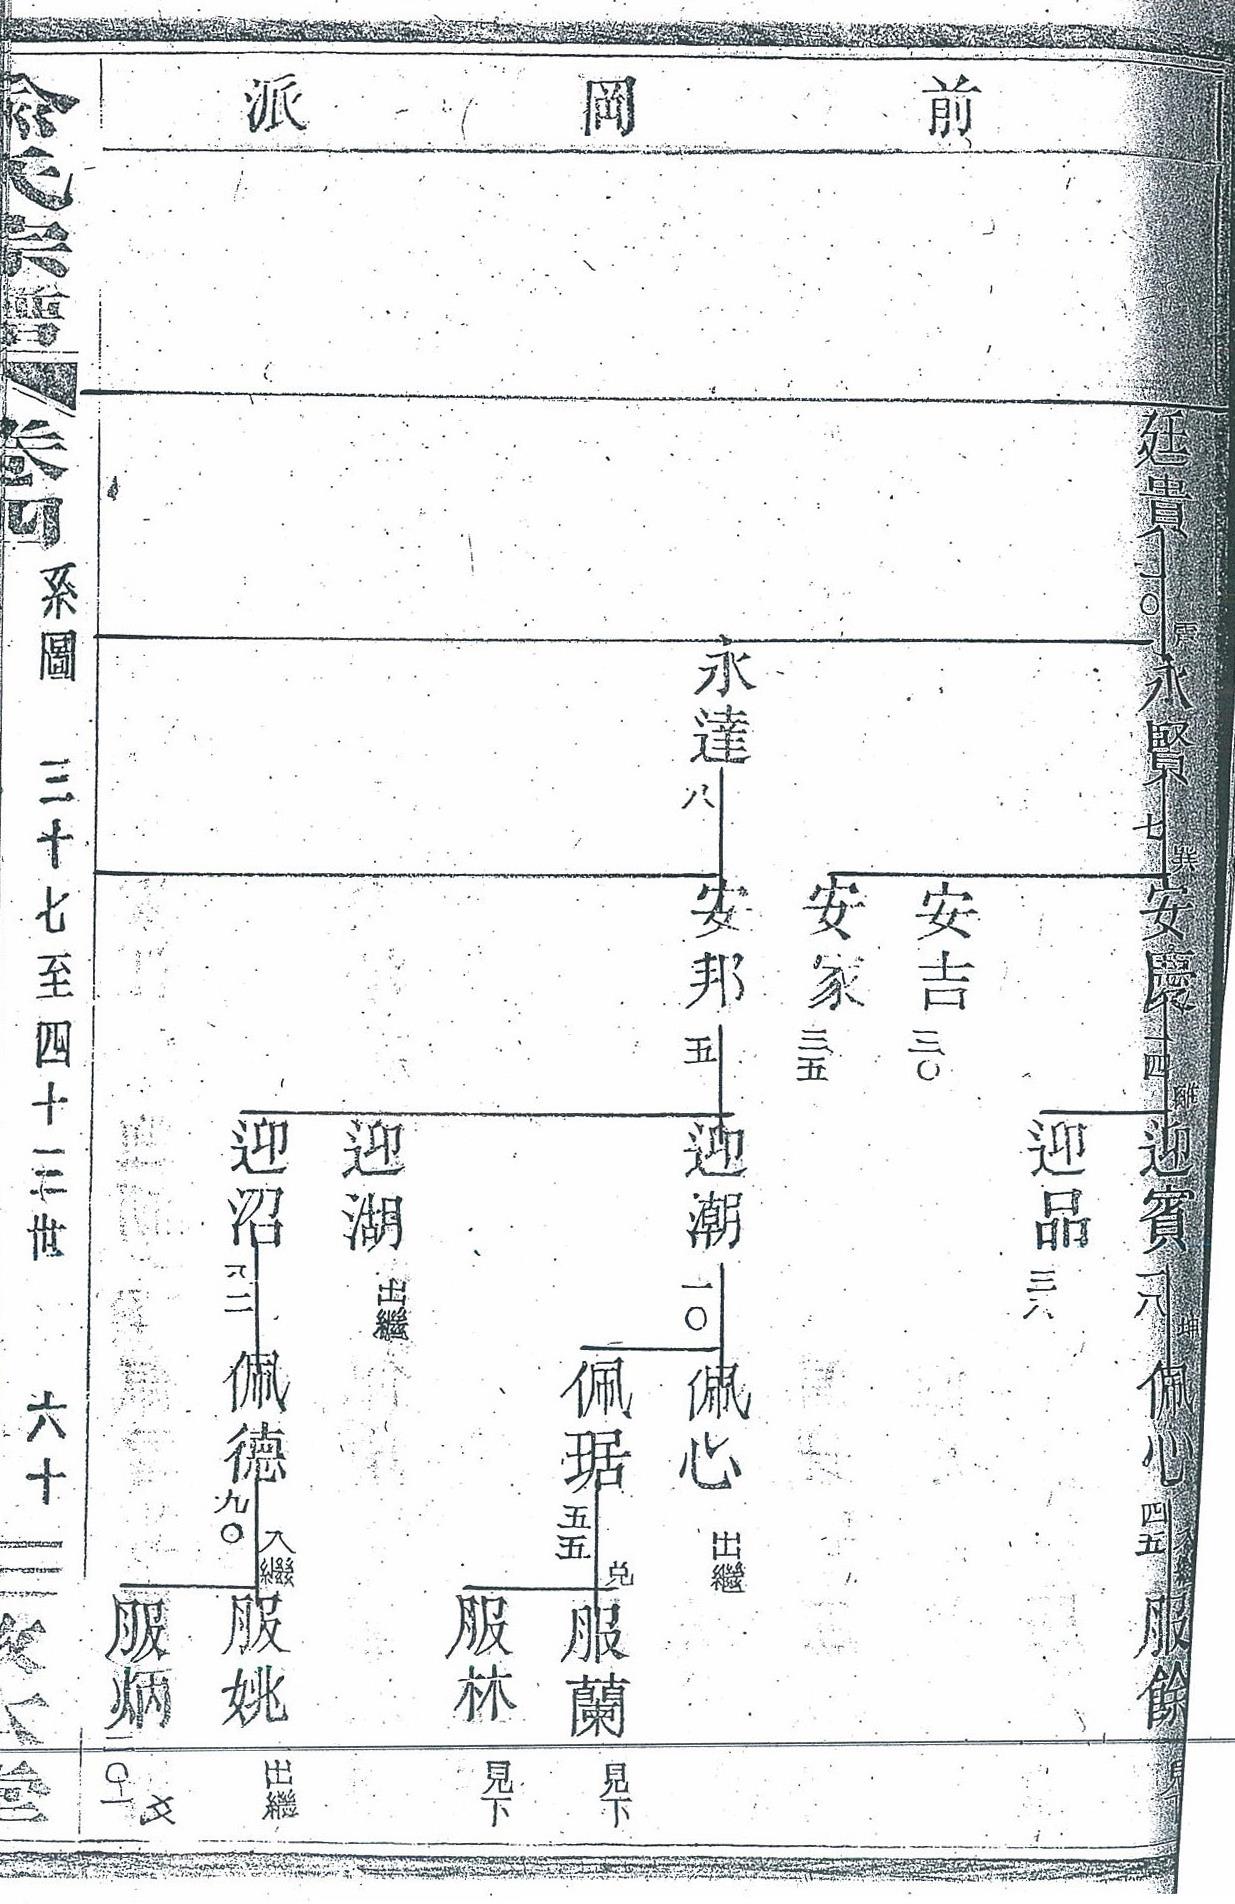 前岡派
廷貴
二〇
震
永賢
七
巽
安慶
十四
離
迎賓
一八
坤
佩心
四五
入繼
服餘
見下
迎品
三六
安吉
三〇
安家
三五
永達
八
安邦
五
迎潮
一〇
佩心
出繼
佩琚
五五
兌
服蘭
見下
服林
見下
迎湖
出繼
迎沼
二
佩德
九〇
入繼
服姚
出繼
服炳
二〇一
俞氏宗譜
卷四
系圖
三十七至四十三世
六十三
敘
堂